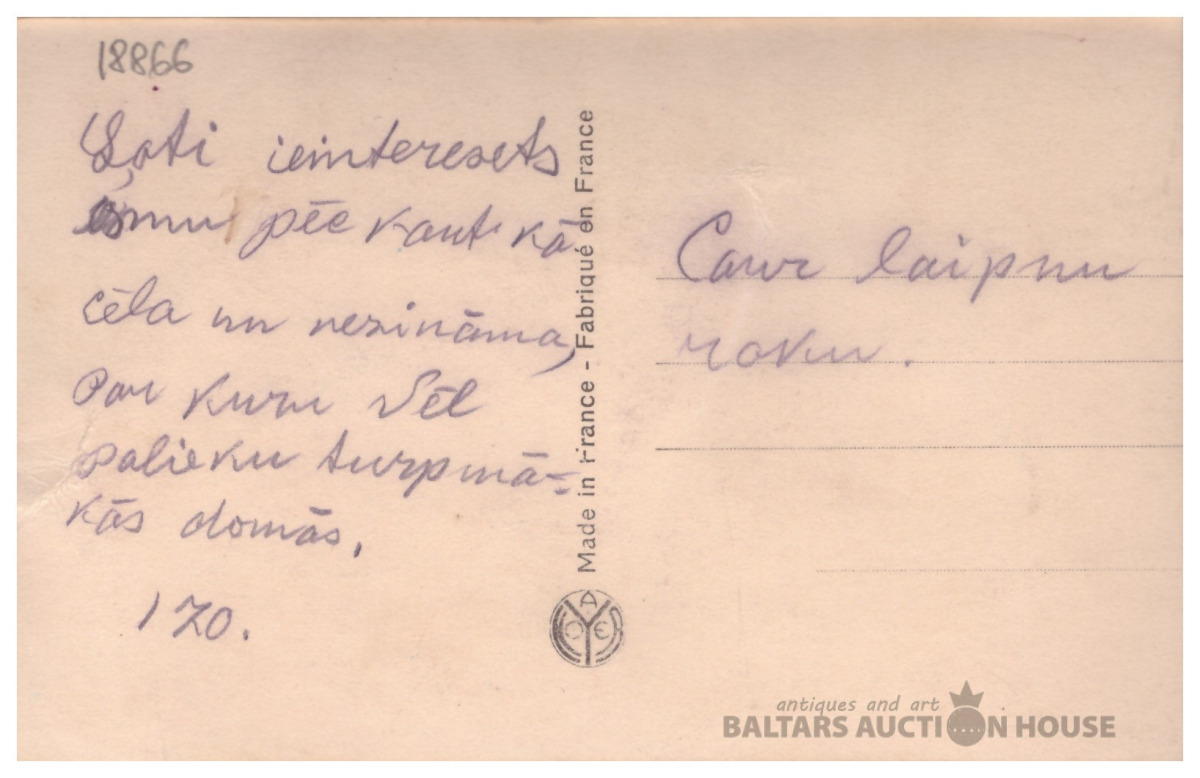 18866
Ļoti ieinteresets
esmu pēc kaut kā
cēla un nezināma,
par kuru vēl
palieku turpmā-
kās domās.
170.
Caur laipnu
roku.
Made in France - Fabriqué en France
antiques and art
BALTARS AUCTION HOUSE